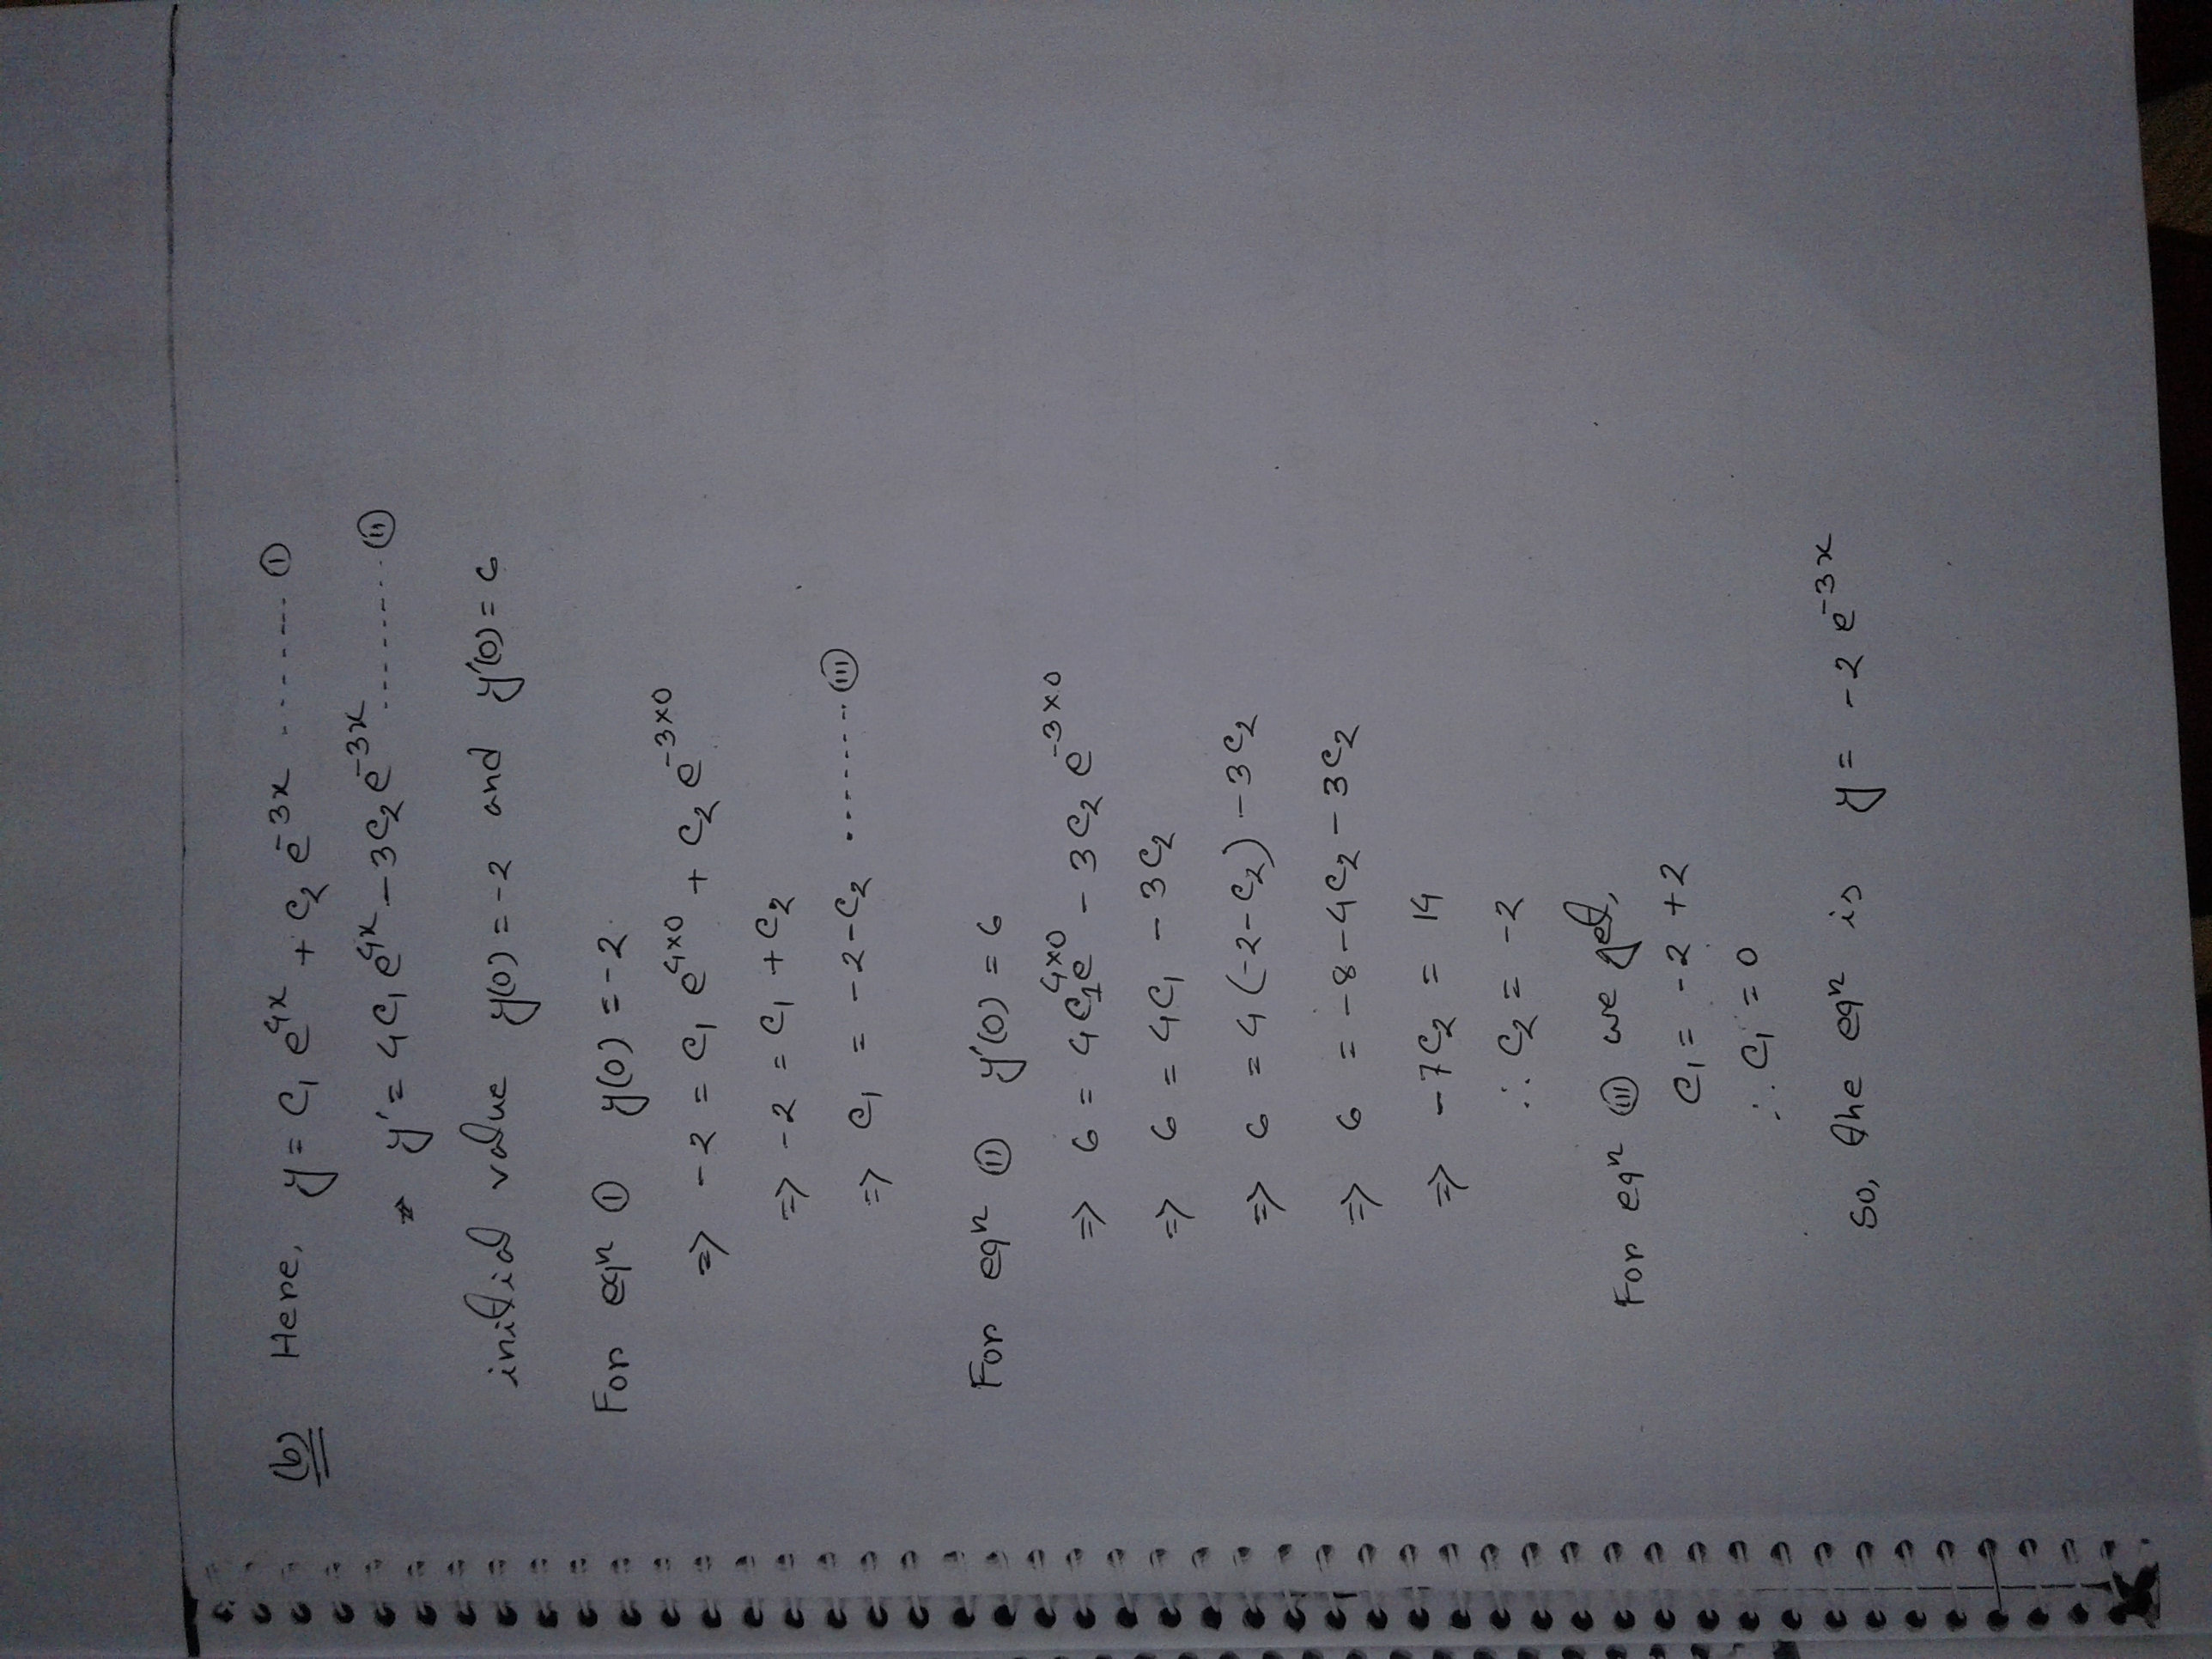 (b) Here, y = c₁ e⁴ˣ + c₂ e⁻³ˣ -------- ①
⇒ y' = 4c₁e⁴ˣ – 3c₂e⁻³ˣ --------- ⑪
initial value y(0) = -2 and y'(0) = 6
For eqⁿ ① y(0) = -2.
=> -2 = c₁ e^{4×0} + c₂ e^{-3×0}
=> -2 = c₁ + c₂
=> c₁ = -2-c₂ -------- (III)
For eqⁿ (II) y'(0) = 6
=> 6 = 4c₁e^{4×0} - 3c₂ e^{-3×0}
=> 6 = 4c₁ - 3c₂
=> 6 = 4(-2-c₂) - 3c₂
=> 6 = -8-4c₂-3c₂
=> -7c₂ = 14
∴ c₂ = -2
For eqⁿ (III) we get,
c₁ = -2 +2
∴ c₁ = 0
So, the eqⁿ is y = -2 e⁻³ˣ